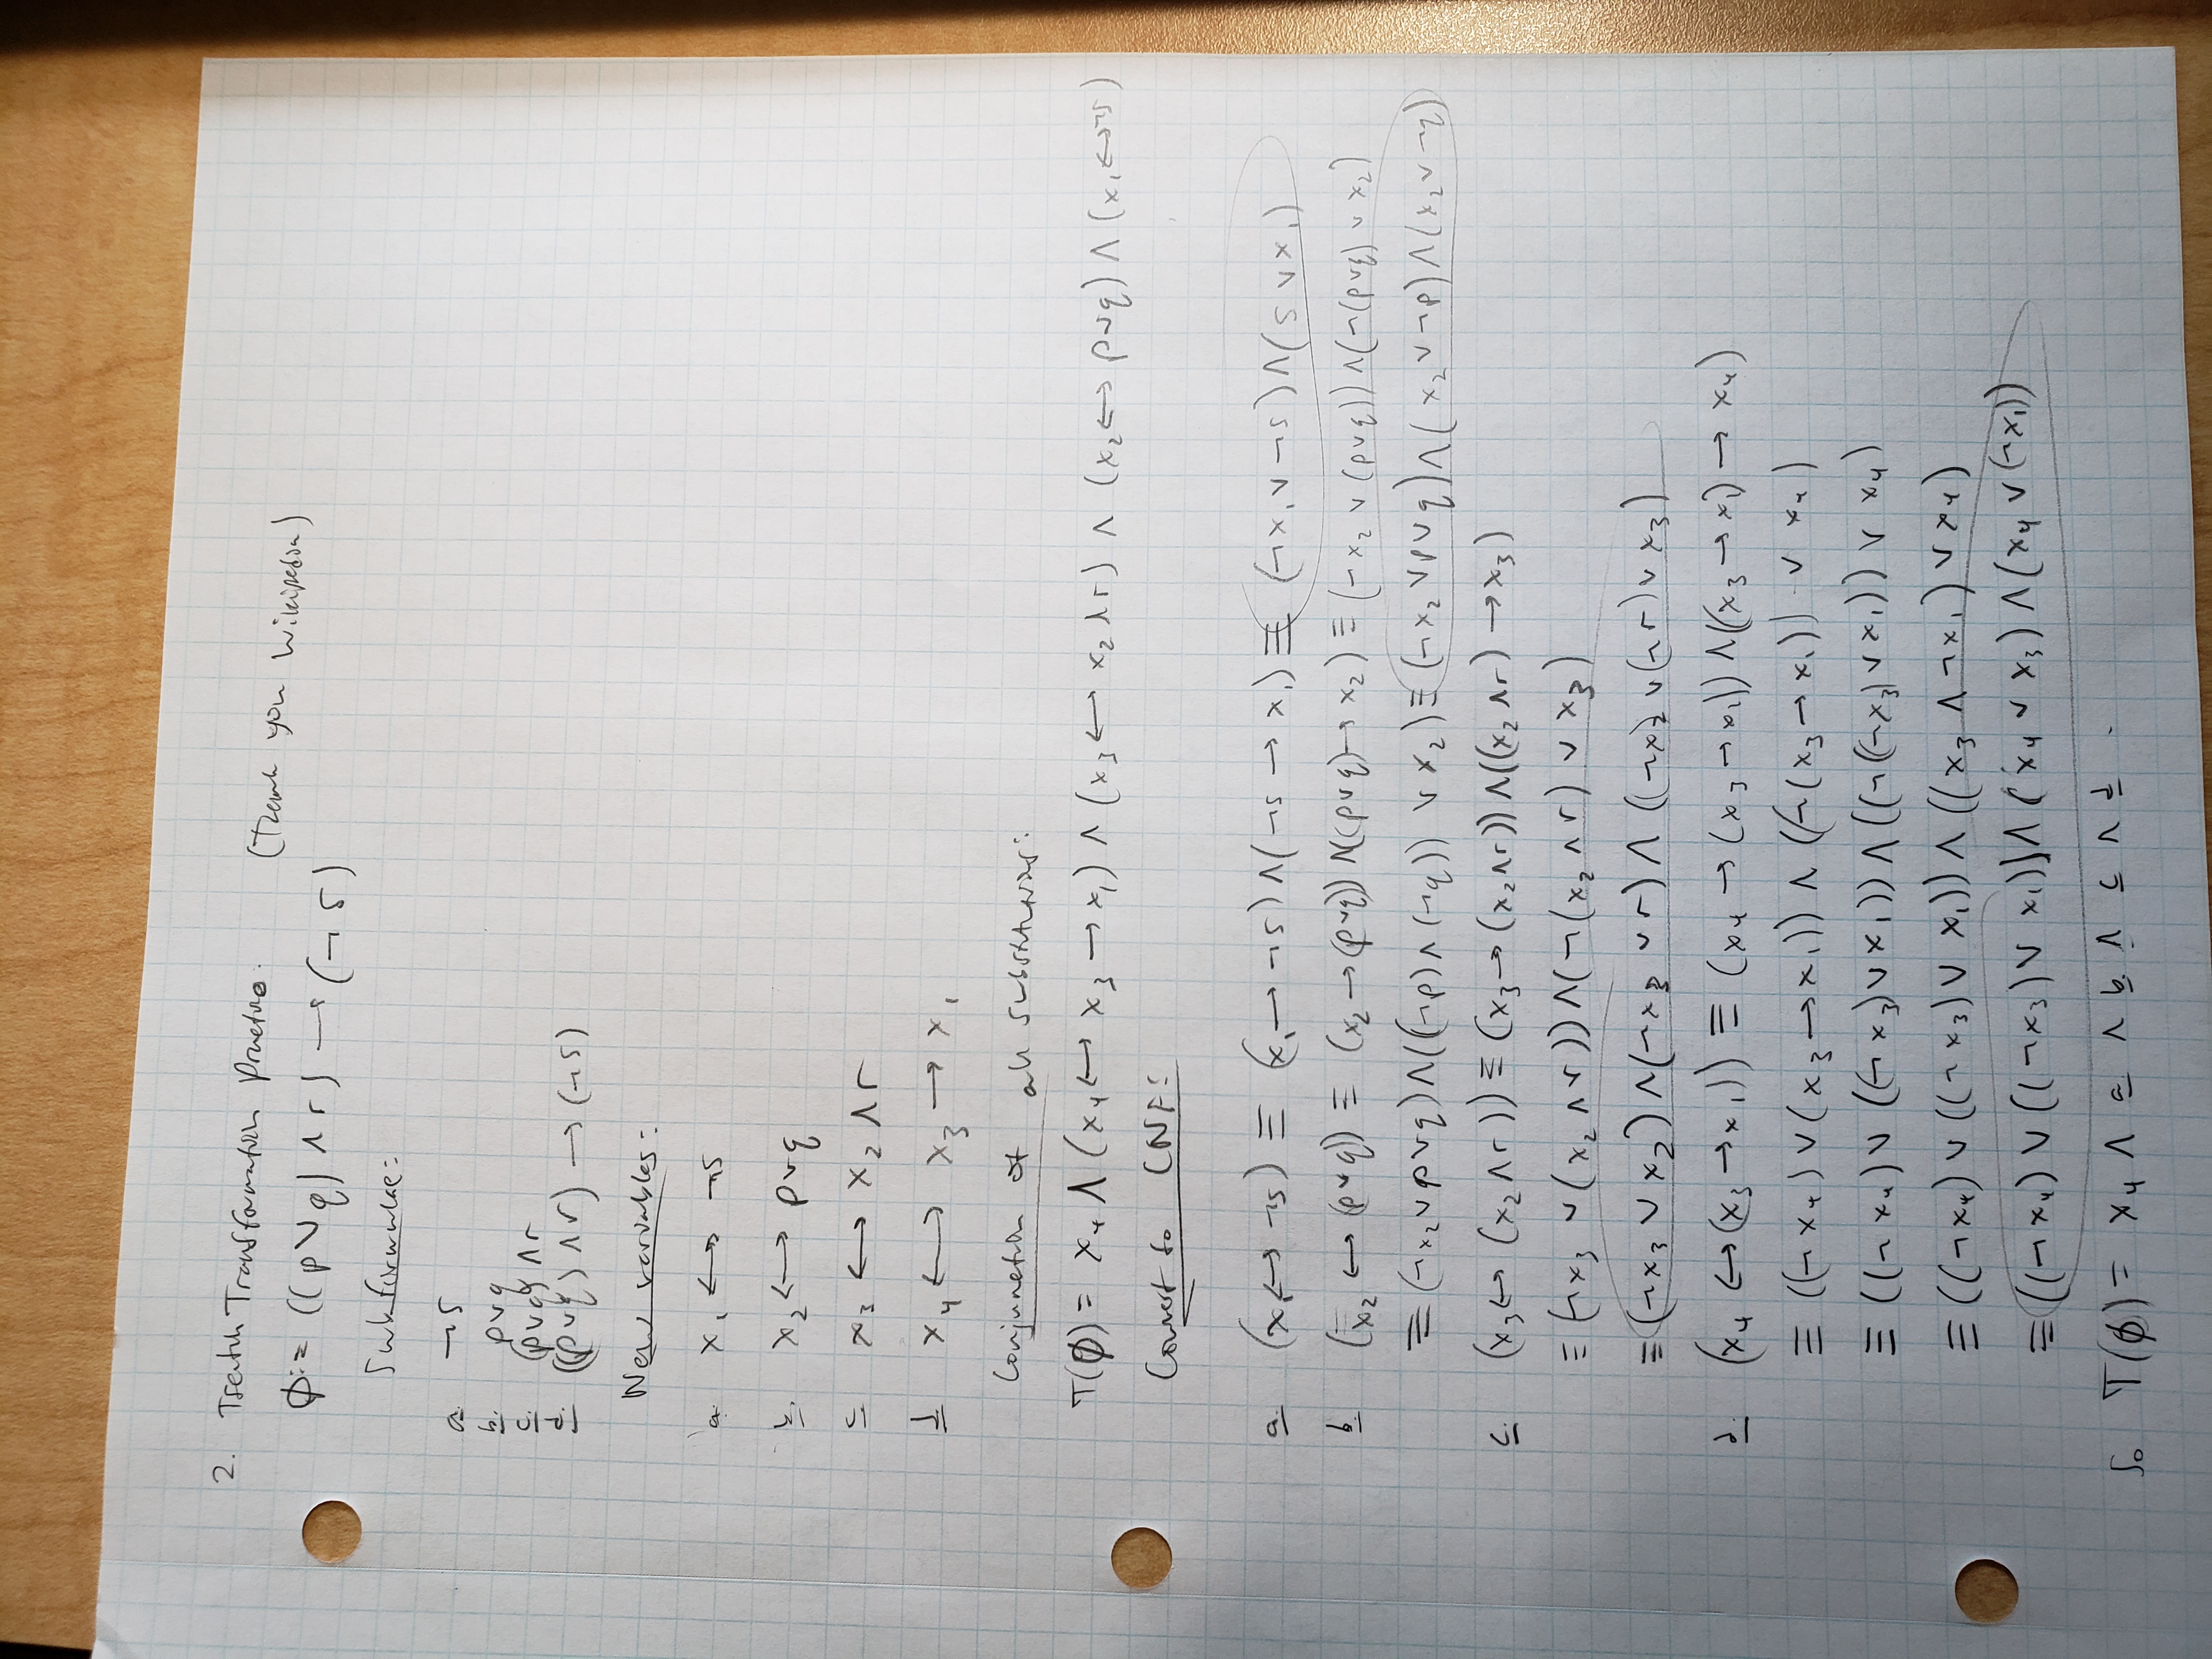 2. Tseitin Transformation Practice. (Thank you Wikipedia)
ϕ:= ((p∨q) ∧ r) → (¬s)
Subformulae:
a. ¬s
b. p∨q
c. (p∨q) ∧ r
d. ((p∨q) ∧ r) → (¬s)
New variables:
a. x₁ ↔ ¬s
b. x₂ ↔ p∨q
c x₃ ↔ x₂ ∧ r
d x₄ ↔ x₃ → x₁
Conjunction of all substitutions:
T(ϕ) = x₄ ∧ (x₄ ↔ x₃ → x₁) ∧ (x₃ ↔ x₂ ∧ r) ∧ (x₂ ↔ p∨q) ∧ (x₁ ↔ ¬s)
Convert to CNF:
a. (x₁ ↔ ¬s) ≡ (x₁ → ¬s) ∧ (¬s → x₁) ≡ (¬x₁ ∨ ¬s) ∧ (s ∨ x₁)
b. (x₂ ↔ (p∨q)) ≡ (x₂ → (p∨q)) ∧ ((p∨q) → x₂) ≡ (¬x₂ ∨ (p∨q)) ∧ (¬(p∨q) ∨ x₂)
≡ (¬x₂ ∨ p ∨ q) ∧ ((¬p) ∧ (¬q)) ∨ x₂) ≡ (¬x₂ ∨ p ∨ q) ∧ (x₂ ∨ ¬p) ∧ (x₂ ∨ ¬q)
c. (x₃ ↔ (x₂ ∧ r)) ≡ (x₃ → (x₂ ∧ r)) ∧ ((x₂ ∧ r) → x₃)
≡ (¬x₃ ∨ (x₂ ∧ r)) ∧ (¬(x₂ ∧ r) ∨ x₃)
≡ (¬x₃ ∨ x₂) ∧ (¬x₃ ∨ r) ∧ ((¬x₂ ∨ (¬r) ∨ x₃)
d. (x₄ ↔ (x₃ → x₁)) ≡ (x₄ → (x₃ → x₁)) ∧ ((x₃ → x₁) → x₄)
≡ ((¬x₄) ∨ (x₃ → x₁)) ∧ ((¬(x₃ → x₁)) ∨ x₄)
≡ ((¬x₄) ∨ ((¬x₃) ∨ x₁)) ∧ ((¬((¬x₃) ∨ x₁)) ∨ x₄)
≡ ((¬x₄) ∨ ((¬x₃) ∨ x₁)) ∧ ((x₃ ∧ ¬x₁) ∨ x₄)
≡ ((¬x₄) ∨ ((¬x₃) ∨ x₁)) ∧ (x₄ ∨ x₃) ∧ (x₄ ∨ (¬x₁))
So T(ϕ) = x₄ ∧ a ∧ b. ∧ c ∧ d.